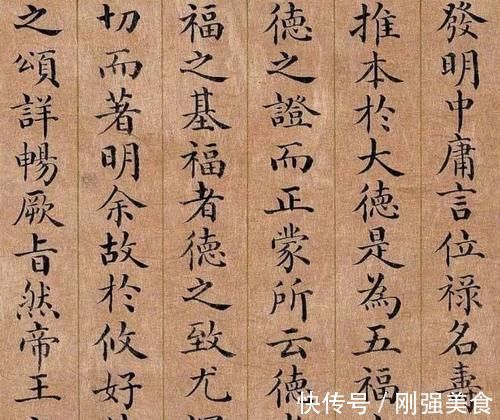 發明中庸言位祿名壽
推本於大德是為五福
德之證而正蒙所云德
福之基福者德之致尤
切而著明余故於攸好
之頌詳暢厥旨然帝王
快传号／刚强美食